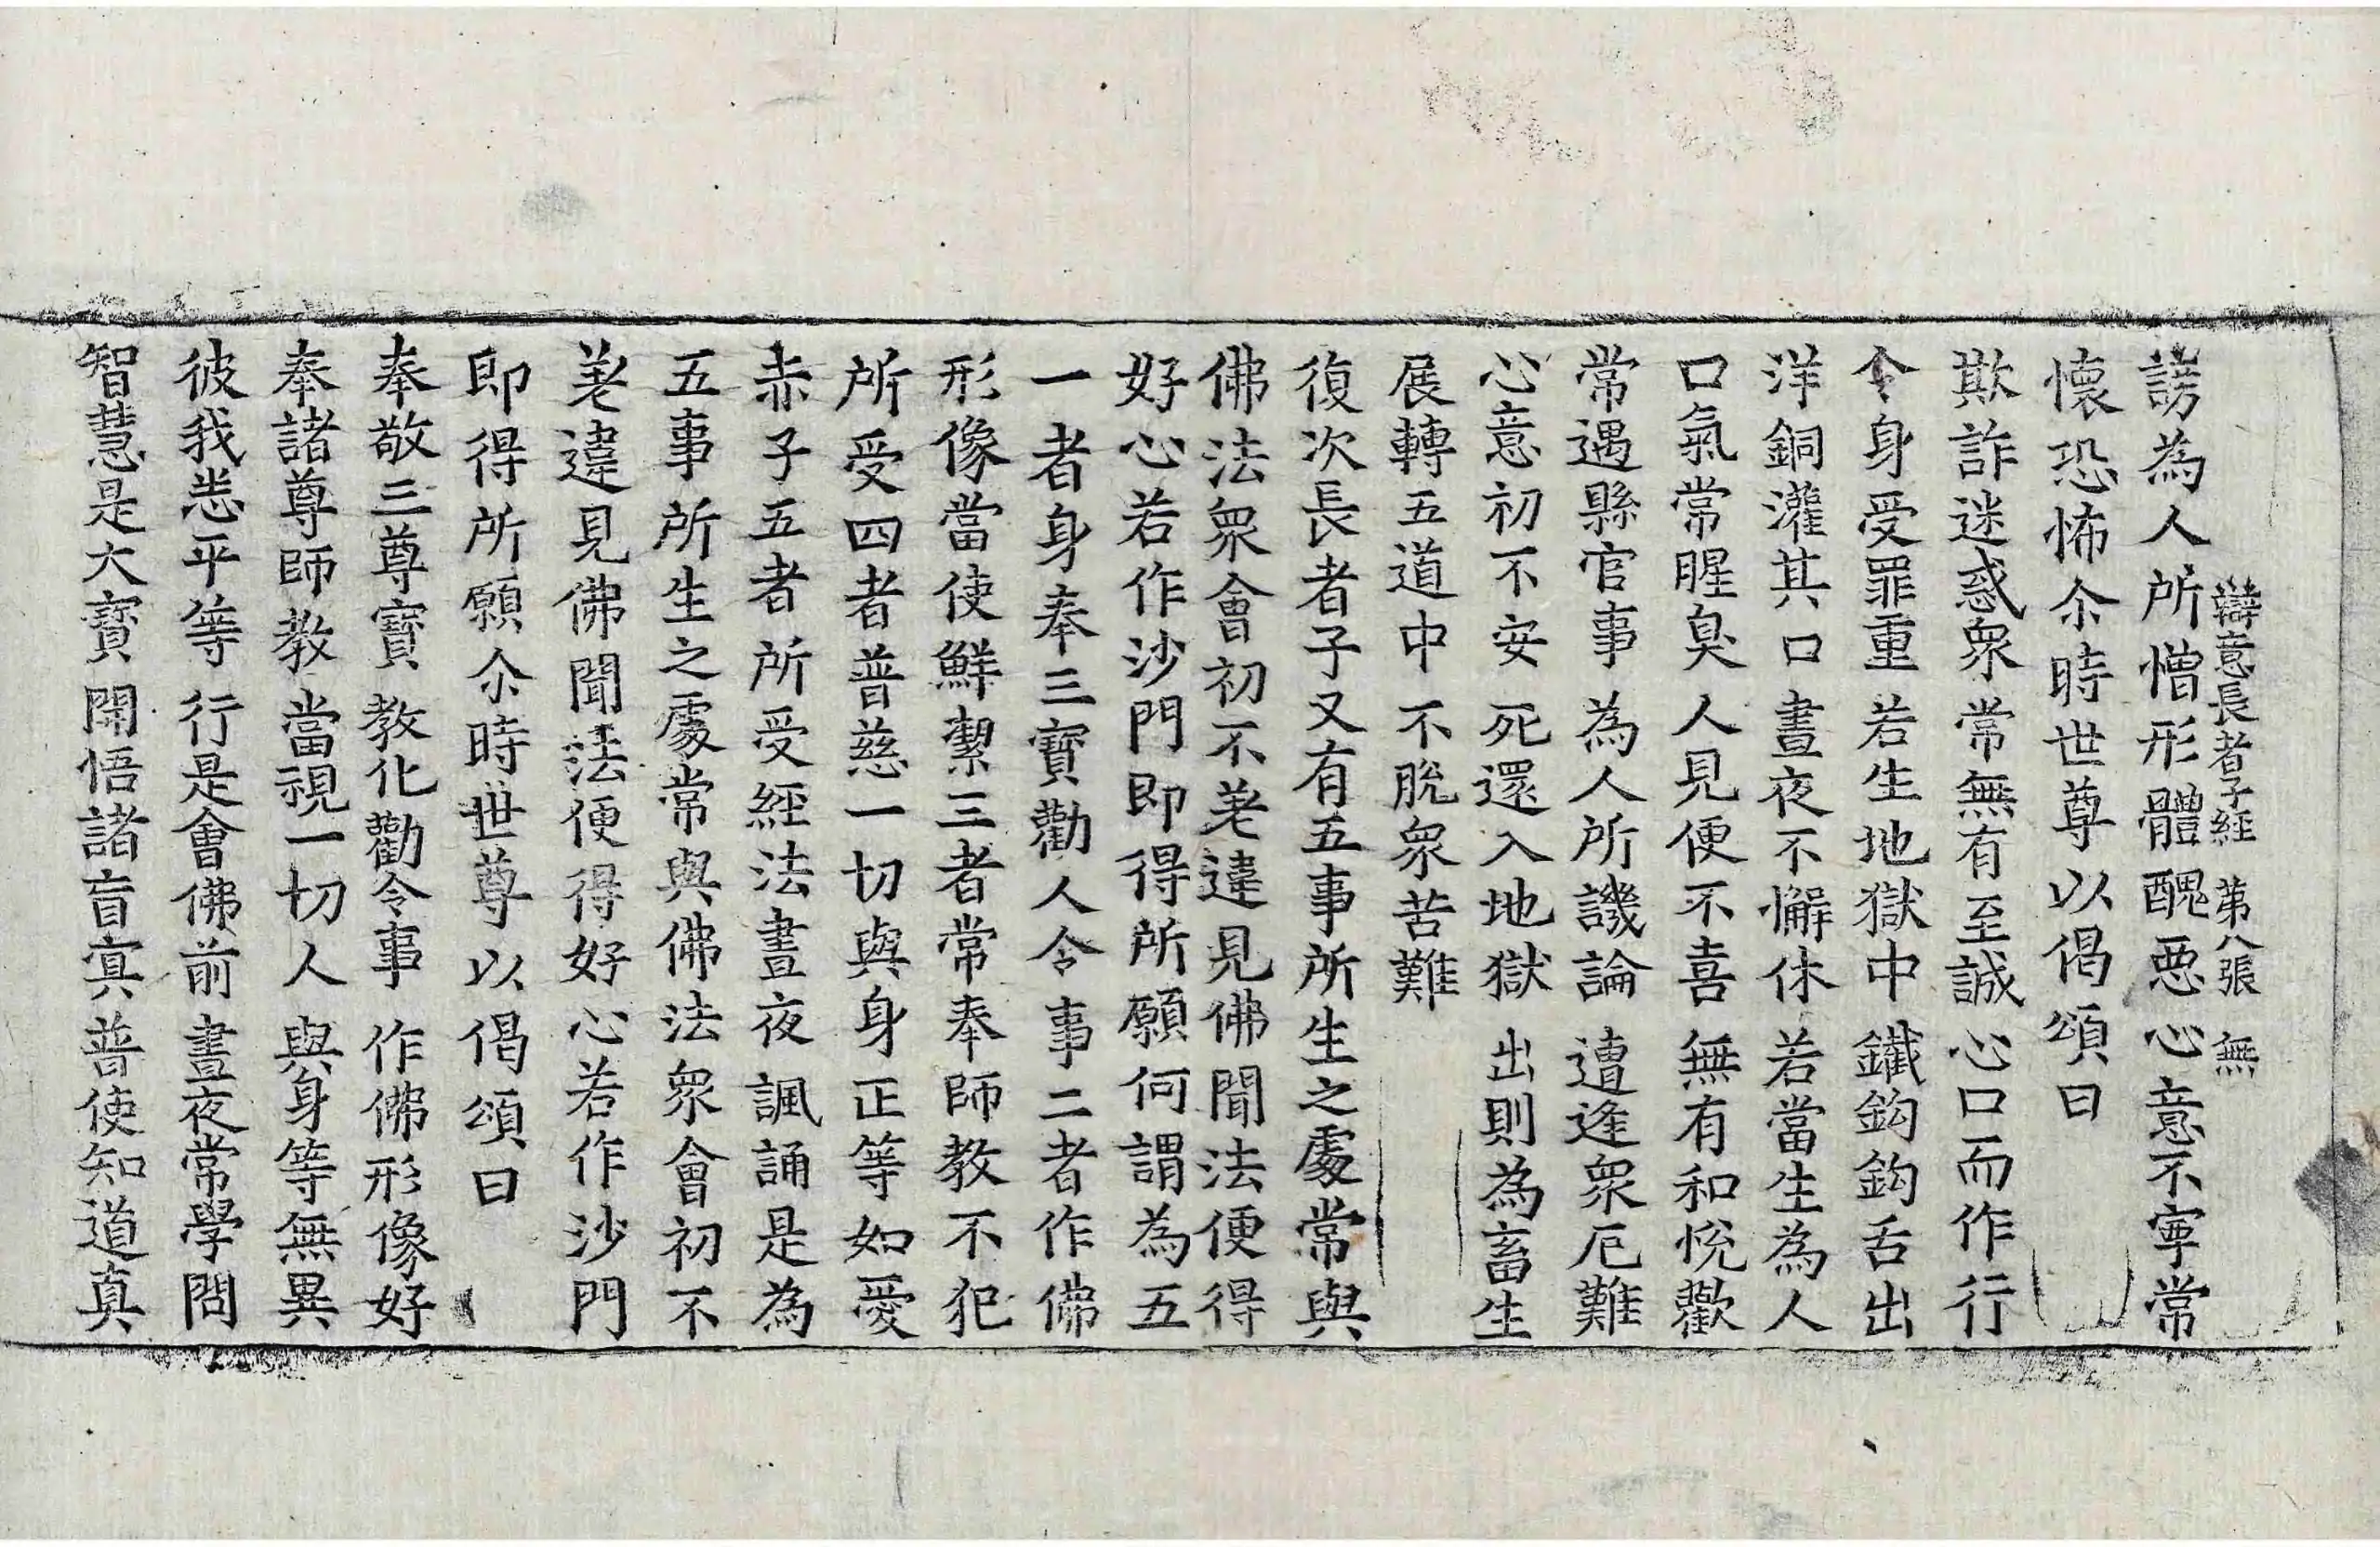 辯意長者子經 第八張 無
謗為人所憎形體醜惡心意不寧常
懷恐怖尒時世尊以偈頌曰
欺詐迷惑衆 常無有至誠 心口而作行
令身受罪重 若生地獄中 鐵鉤鉤舌出
洋銅灌其口 晝夜不懈休 若當生為人
口氣常腥臭 人見便不喜 無有和悅歡
常遇縣官事 為人所譏論 遭逢衆厄難
心意初不安 死還入地獄 出則為畜生
展轉五道中 不脫衆苦難
復次長者子又有五事所生之處常與
佛法衆會初不差違見佛聞法便得
好心若作沙門即得所願何謂為五
一者身奉三寶勸人令事二者作佛
形像當使鮮潔三者常奉師教不犯
所受四者普慈一切與身正等如愛
赤子五者所受經法晝夜諷誦是為
五事所生之處常與佛法衆會初不
差違見佛聞法便得好心若作沙門
即得所願尒時世尊以偈頌曰
奉敬三尊寶 教化勸令事 作佛形像好
奉諸尊師教 當視一切人 與身等無異
彼我悉平等 行是會佛前 晝夜常學問
智慧是大寶 開悟諸盲冥 普使知道真